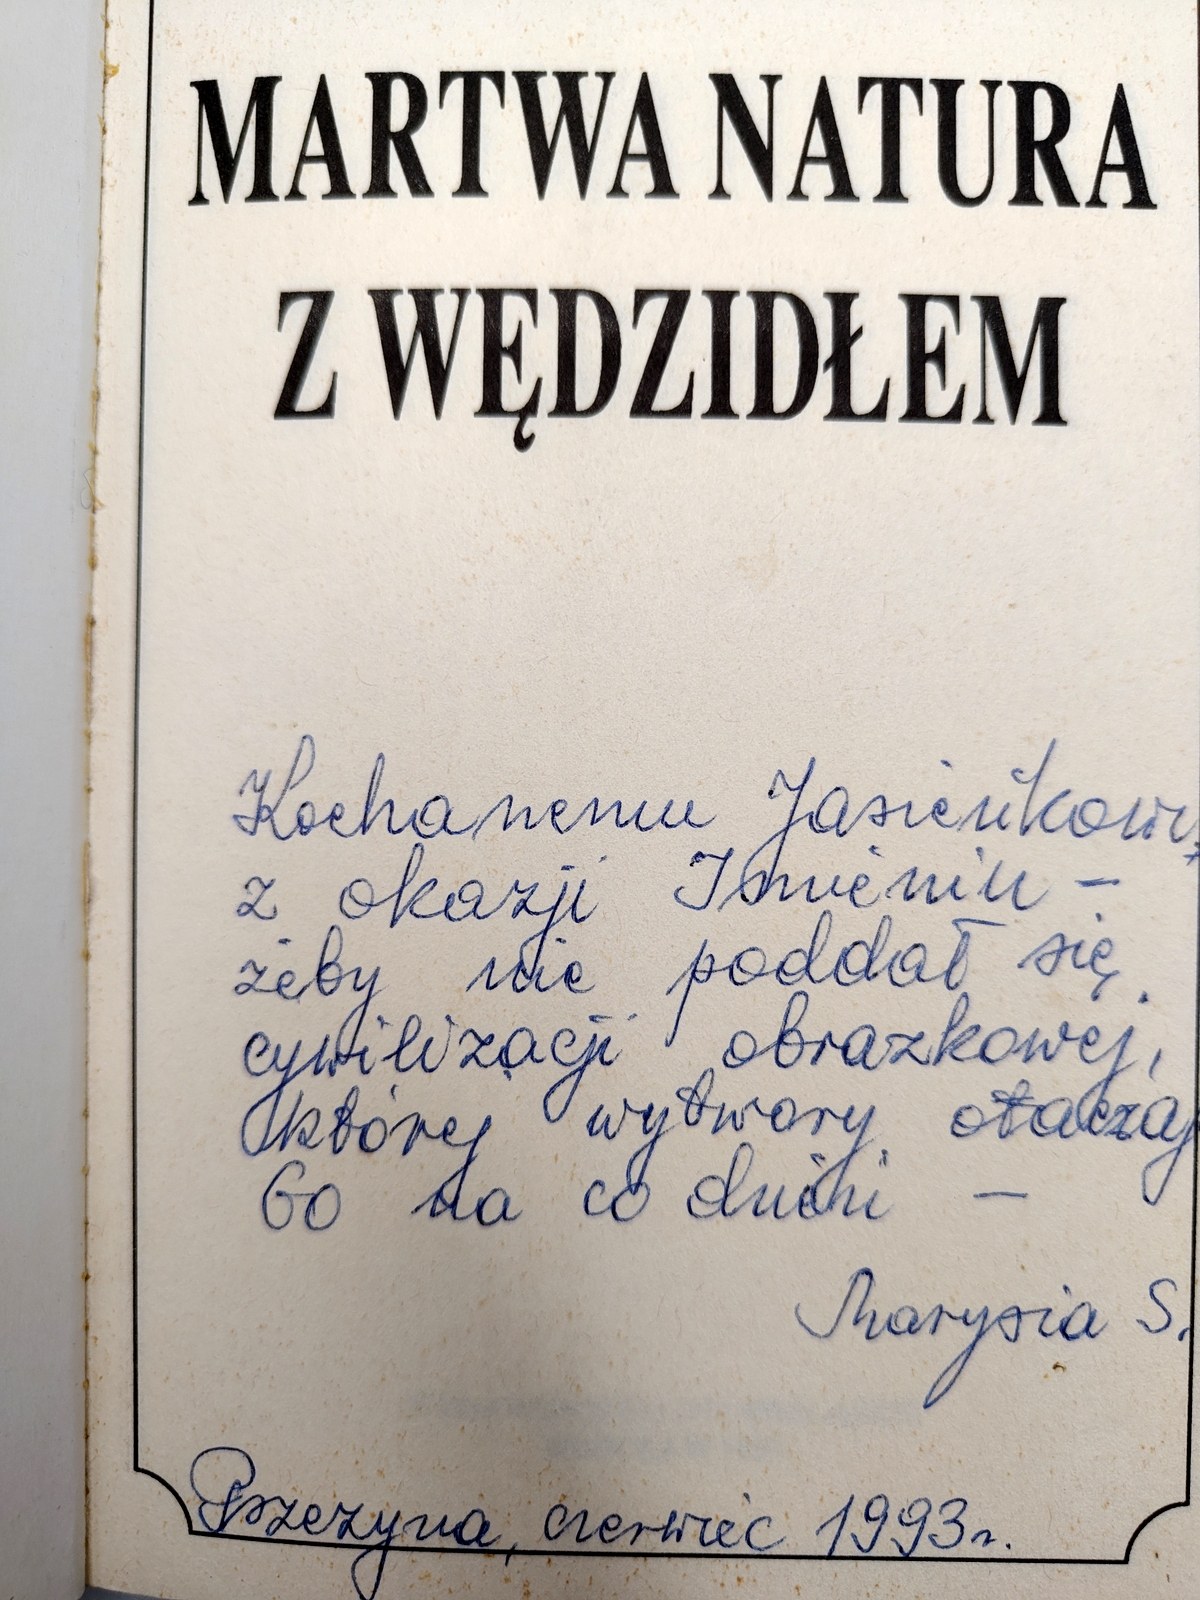 MARTWA NATURA
Z WĘDZIDŁEM
Kochanemu Jasieńkowi
z okazji Imienin –
żeby nie poddał się
cywilizacji obrazkowej,
której wytwory otaczają
Go na co dzień –
Marysia S.
czerwiec 1993 r.